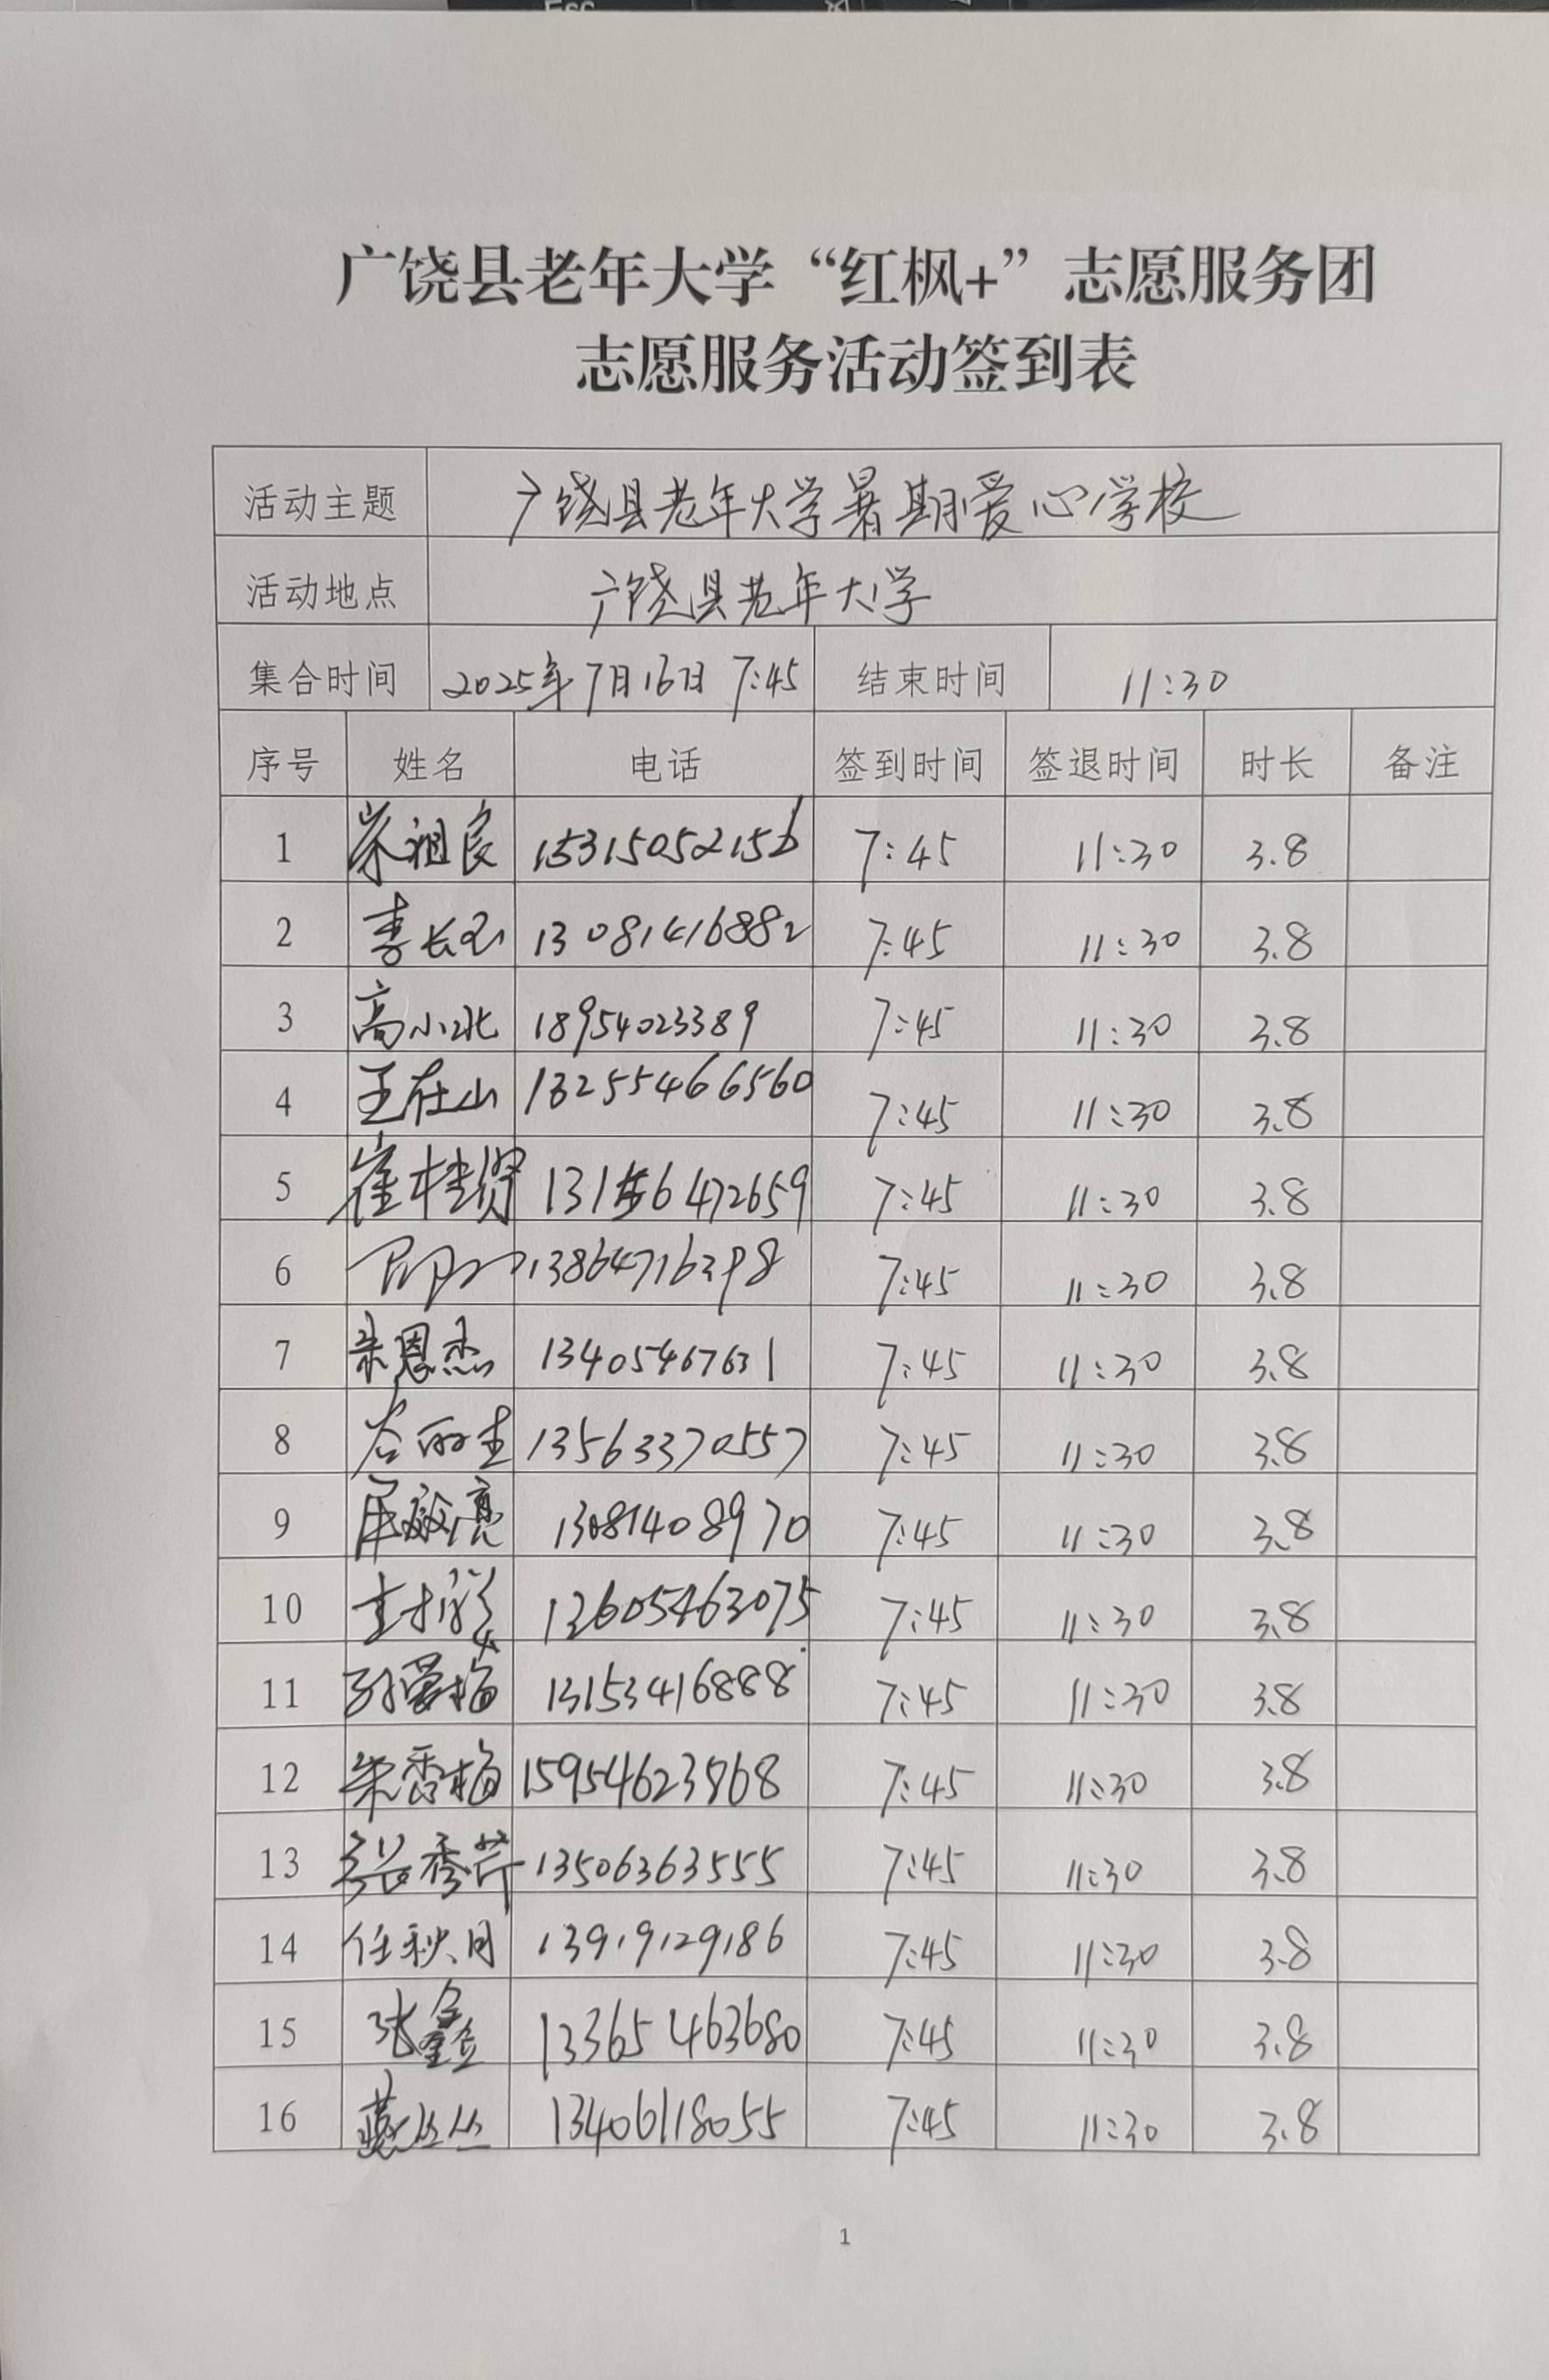 广饶县老年大学“红枫+”志愿服务团
志愿服务活动签到表
活动主题 广饶县老年大学暑期爱心学校
活动地点 广饶县老年大学
集合时间 2025年7月16日 7:45 结束时间 11:30
序号 姓名 电话 签到时间 签退时间 时长 备注
1 祖良 15315052156 7:45 11:30 3.8
2 李长 13081416882 7:45 11:30 3.8
3 高小北 18954023389 7:45 11:30 3.8
4 王在山 13255466560 7:45 11:30 3.8
5 崔桂贤 7:45 11:30 3.8
6 13864716398 7:45 11:30 3.8
7 宋恩杰 13405467631 7:45 11:30 3.8
8 13563370557 7:45 11:30 3.8
9 13081408970 7:45 11:30 3.8
10 13605463075 7:45 11:30 3.8
11 梅 13153416888 7:45 11:30 3.8
12 朱香梅 15954623868 7:45 11:30 3.8
13 秀芹 13506363555 7:45 11:30 3.8
14 任秋月 13919129186 7:45 11:30 3.8
15 张鑫 13365463680 7:45 11:30 3.8
16 丛丛 13406118055 7:45 11:30 3.8
1